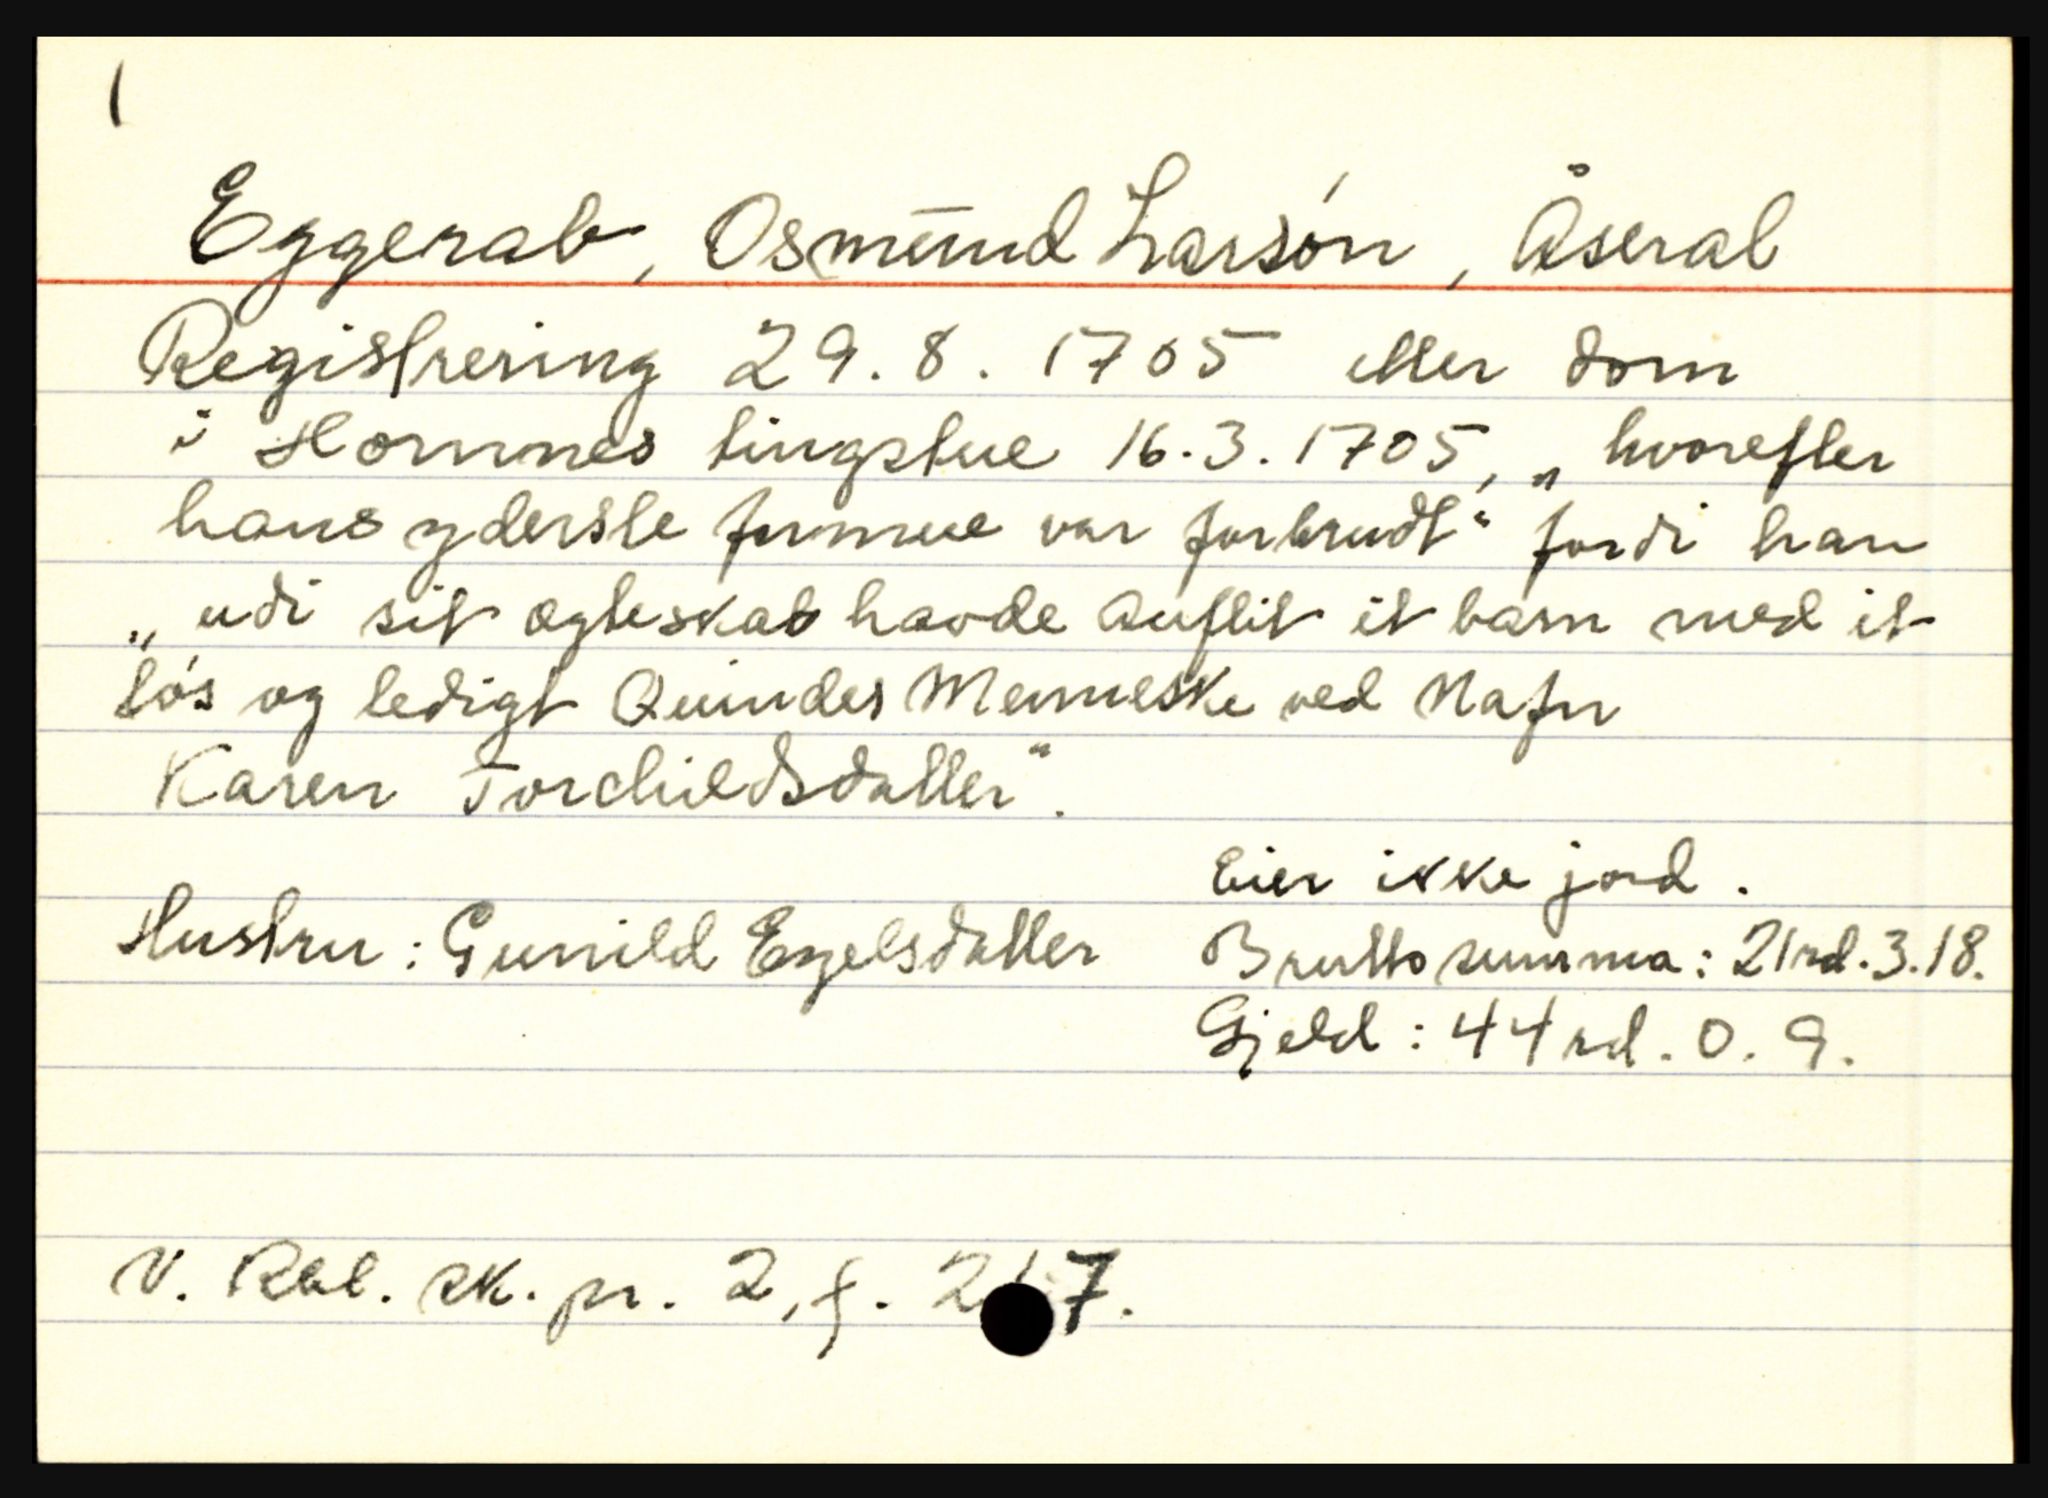 1
Eggerab, Osmund Larsón, Åseral
Registrering 29.8.1705 etter dom
i Homnes tingstue 16.3.1705, „hvorefter
hans yderste formue var forbrudt" fordi han
„udi sit ægteskab havde auflit it barn med it
løs og ledigt Quindes Menneske ved Nafn
Karen Torchieldsdatter".
Eier ikke jord.
Hustru: Gunild Egelsdatter
Brutto summa: 21 rd. 3. 18.
Gjeld: 44 rd. 0. 9.
V. Rbl. sk. pr. 2, f.